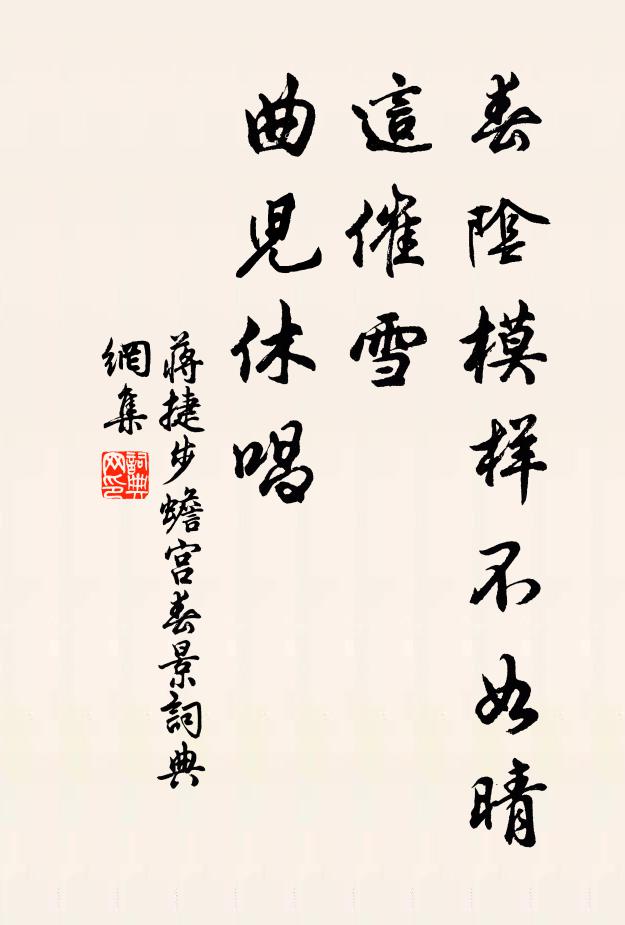 春陰模样不如晴
這催雪
曲児休唱
蔣捷步蟾宫春景詞典
網集
詞典
网印